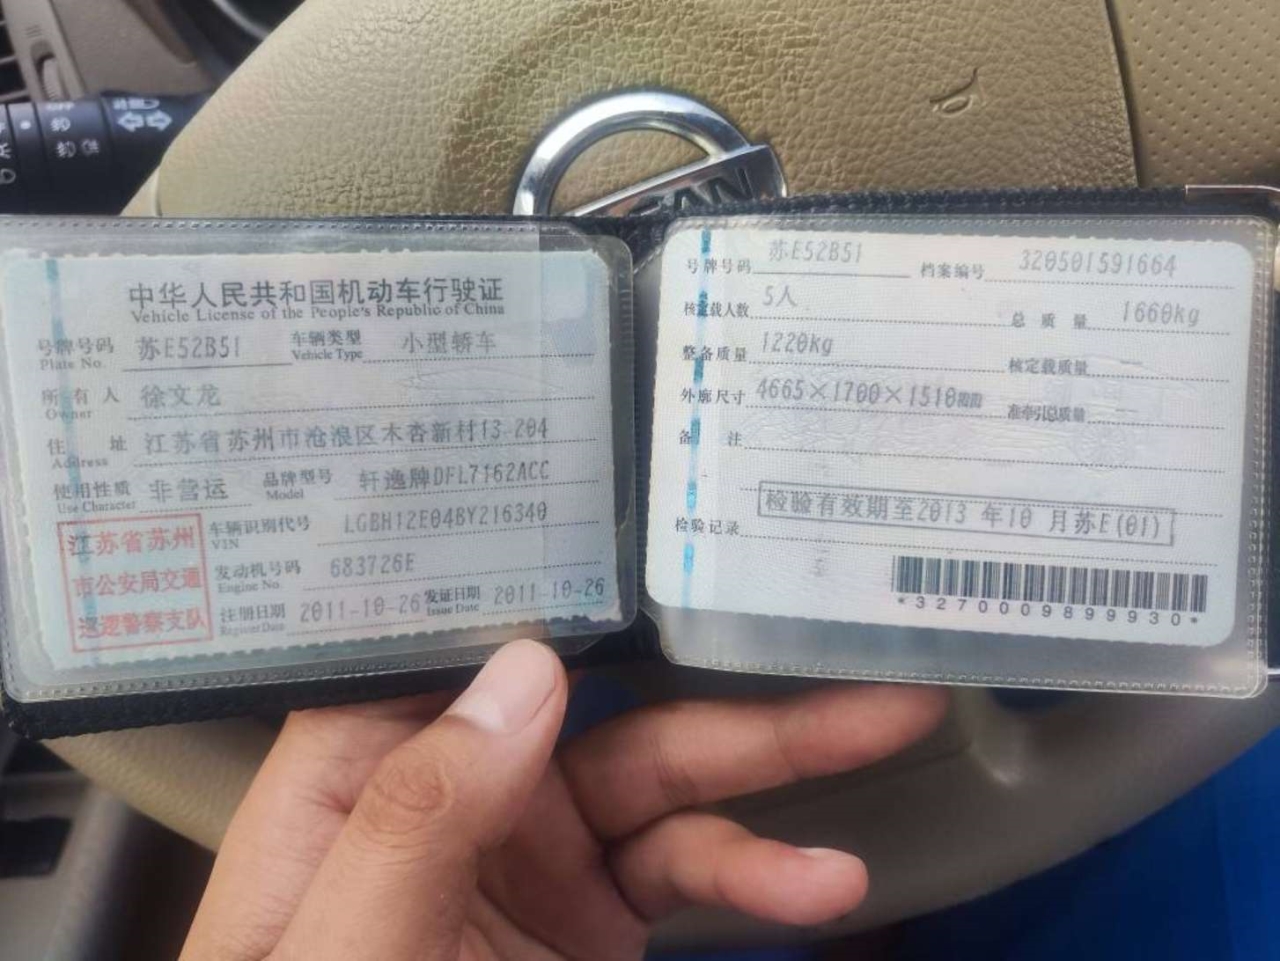 中华人民共和国机动车行驶证
Vehicle License of the People's Republic of China
号牌号码 苏E52B51 车辆类型 小型轿车
Plate No. Vehicle Type
所有人 徐文龙
Owner
住址 江苏省苏州市沧浪区木杏新村13-204
Address
使用性质 非营运 品牌型号 轩逸牌DFL7162ACC
Use Character Model
江苏省苏州
市公安局交通
巡逻警察支队
车辆识别代号 LGBH12E04BY216340
VIN
发动机号码 683726E
Engine No.
注册日期 2011-10-26 发证日期 2011-10-26
Register Date Issue Date
号牌号码 苏E52B51 档案编号 320501591664
核定载人数 5人 总质量 1660kg
整备质量 1220kg 核定载质量 --
外廓尺寸 4665×1700×1510 准牵引总质量 --
备注
检验记录 检验有效期至2013年10月苏E(01)
*3270009899930*